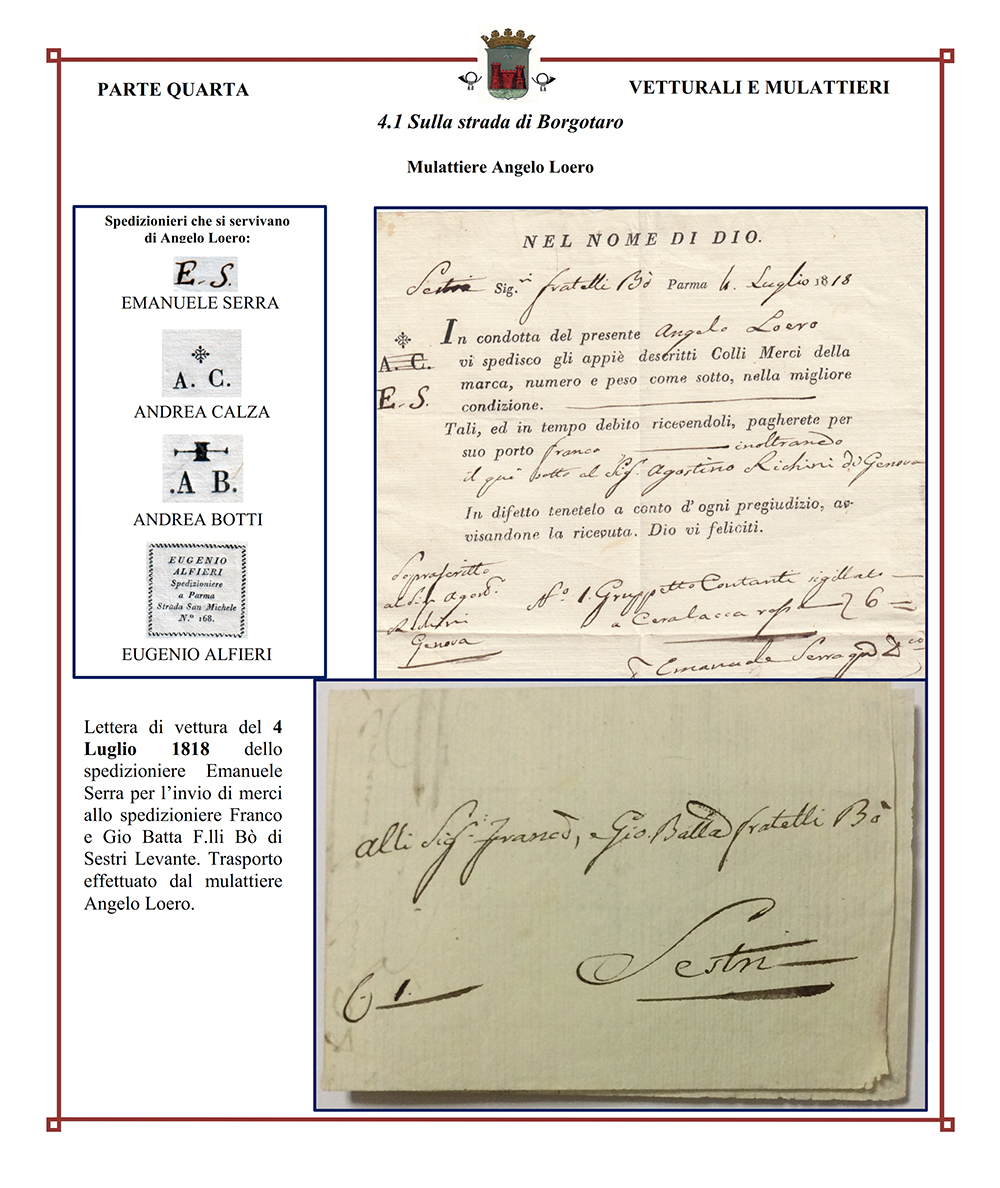 PARTE QUARTA
VETTURALI E MULATTIERI
4.1 Sulla strada di Borgotaro
Mulattiere Angelo Loero
Spedizionieri che si servivano
di Angelo Loero:
E. S.
EMANUELE SERRA
A. C.
ANDREA CALZA
.A B.
ANDREA BOTTI
EUGENIO
ALFIERI
Spedizioniere
a Parma
Strada San Michele
N.° 168.
EUGENIO ALFIERI
NEL NOME DI DIO.
Sestri Sig.ri fratelli Bò Parma 4. Luglio 1818
In condotta del presente Angelo Loero
A. C.
vi spedisco gli appiè descritti Colli Merci della
marca, numero e peso come sotto, nella migliore
E. S.
condizione.
Tali, ed in tempo debito ricevendoli, pagherete per
suo porto franco inoltrando
il quì sotto al Sig. Agostino Richini di Genova
In difetto tenetelo a conto d' ogni pregiudizio, av-
visandone la ricevuta. Dio vi feliciti.
Soprascritto
al Sig. Agost.
Richini
Genova
N.° 1. Gruppetto Contanti sigillato
a Ceralacca rossa 6
Emanuele Serra
Lettera di vettura del 4
Luglio 1818 dello
spedizioniere Emanuele
Serra per l’invio di merci
allo spedizioniere Franco
e Gio Batta F.lli Bò di
Sestri Levante. Trasporto
effettuato dal mulattiere
Angelo Loero.
alli Sig.i Franco, e Gio. Batta fratelli Bò
Sestri
G 1.